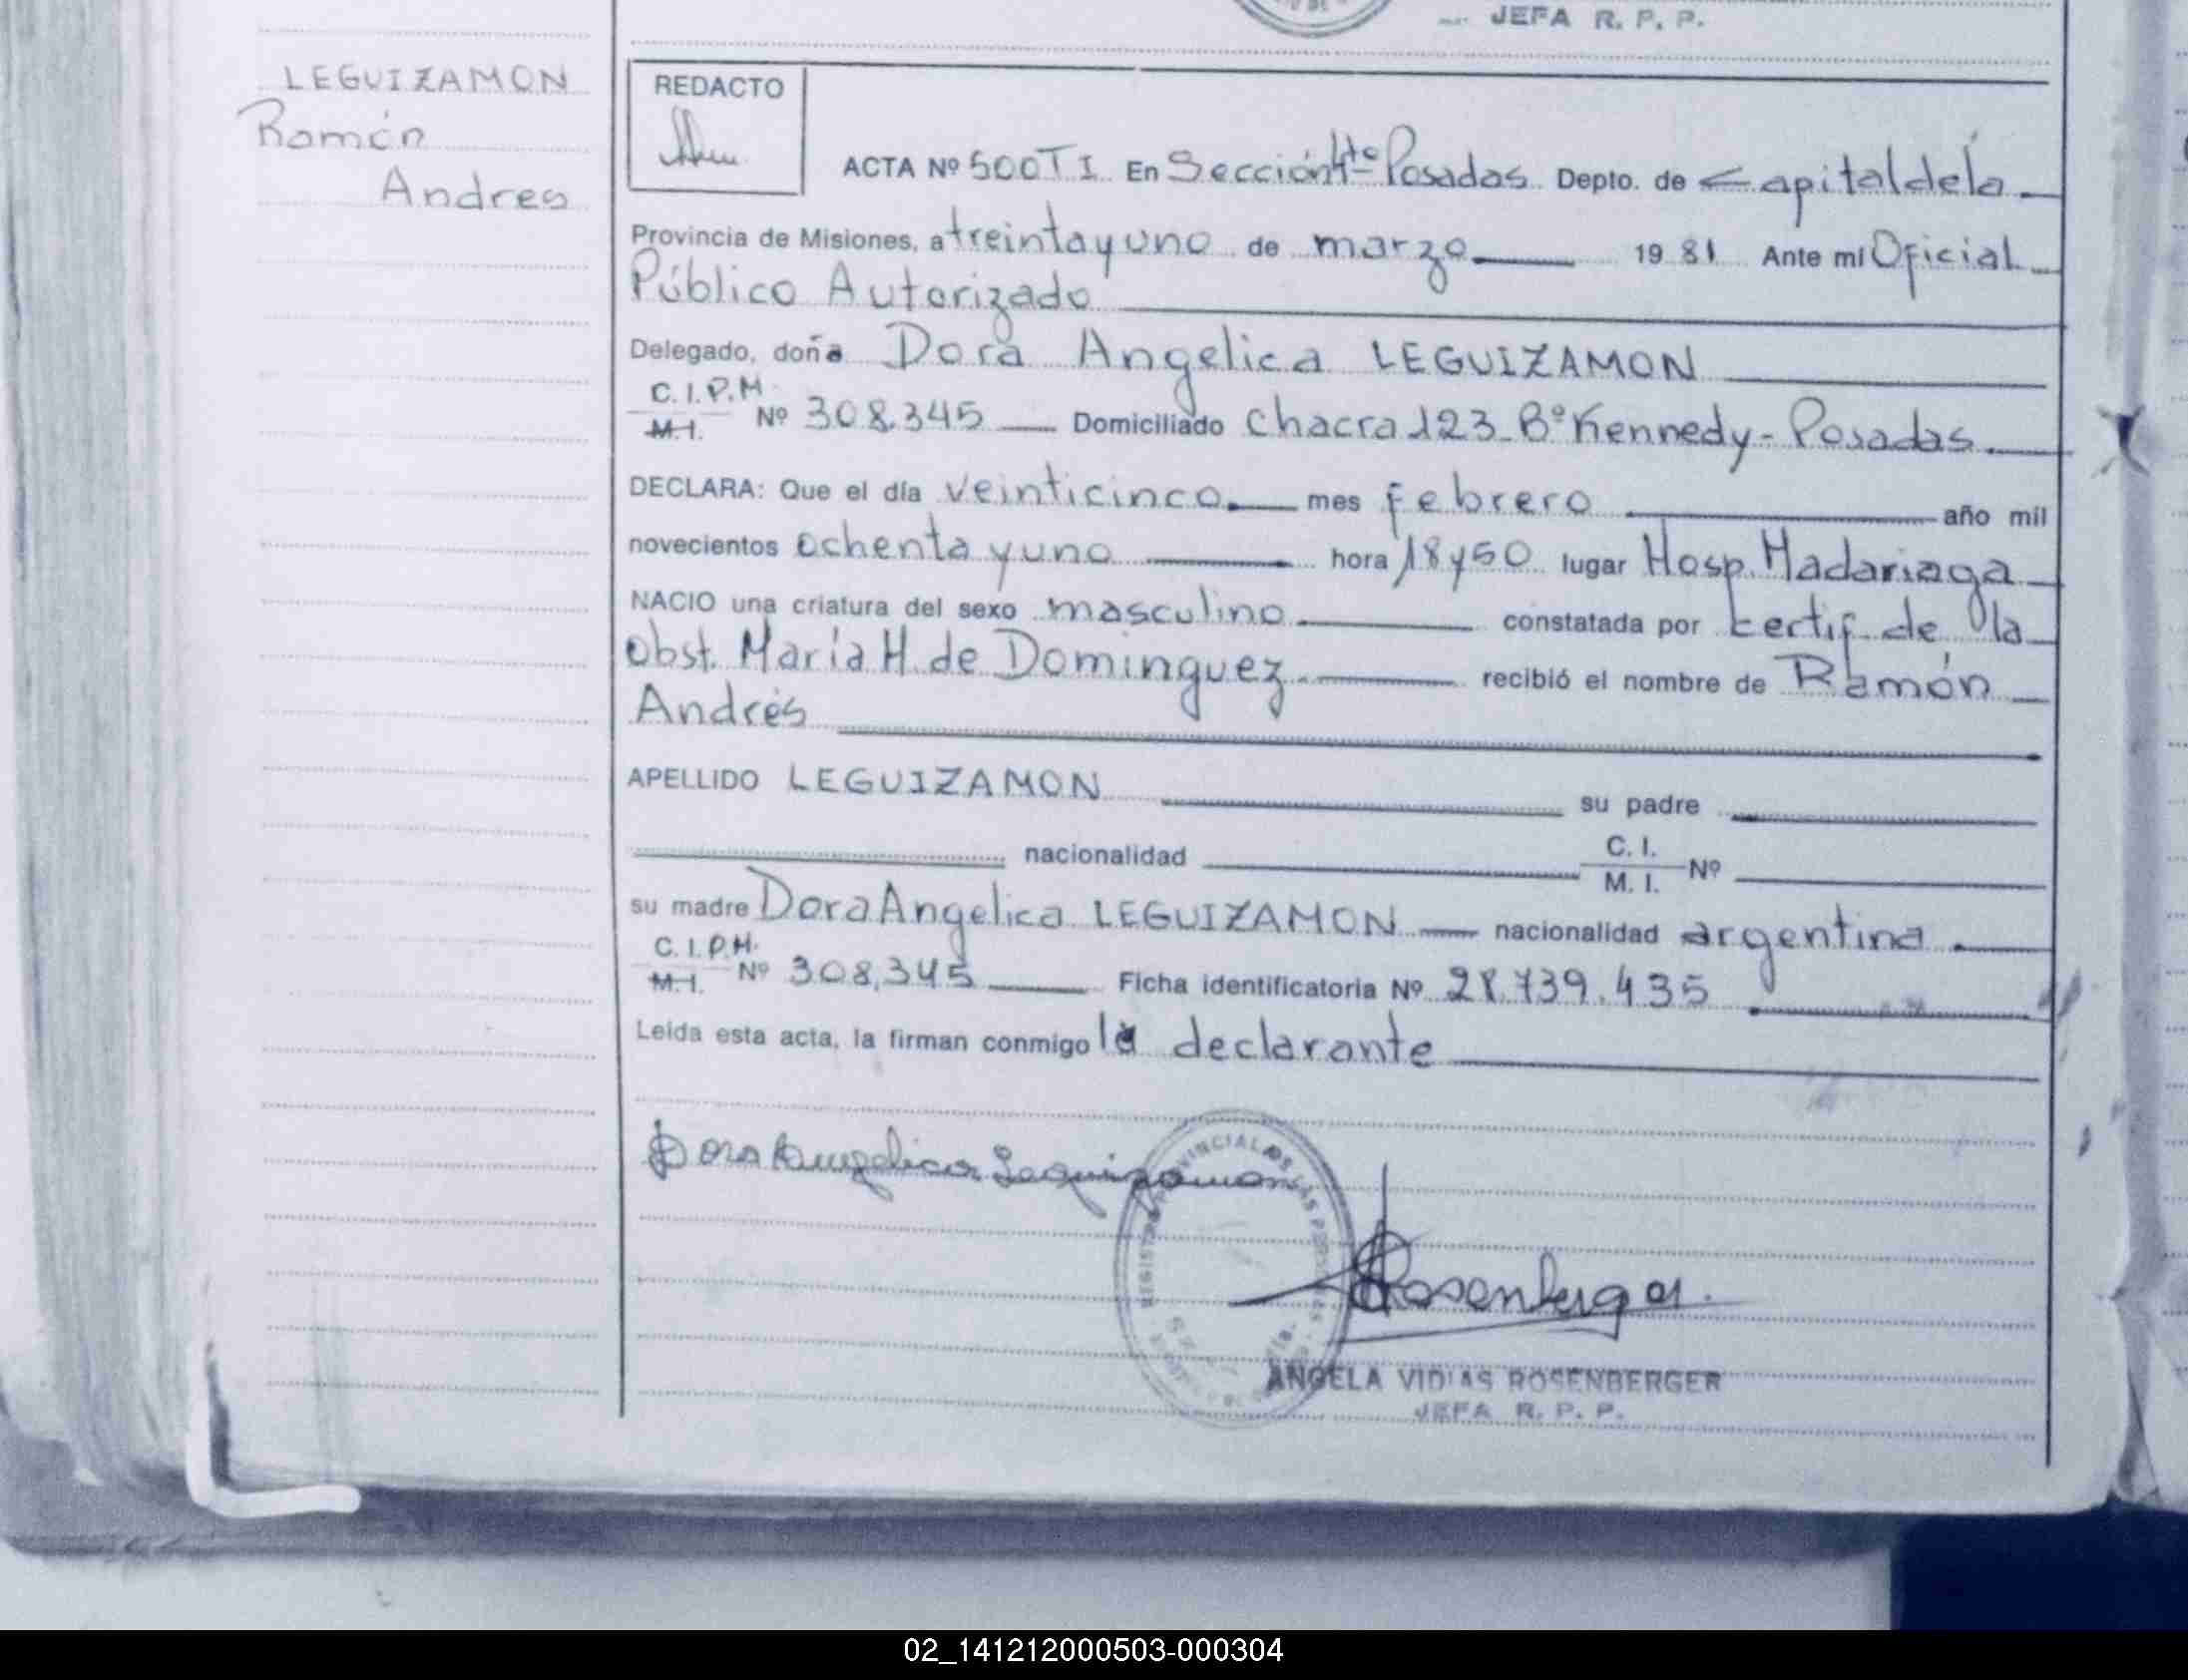 JEFA R. P. P.
LEGUIZAMON
Ramón
Andres
REDACTO
ACTA Nº 500 T I En Sección 4ta Posadas Depto. de Capital de la
Provincia de Misiones, a treinta y uno de marzo 1981 Ante mí Oficial
Público Autorizado
Delegado, doña Dora Angelica LEGUIZAMON
C.I.P.M.
M.I. Nº 308.345 Domiciliado Chacra 123 Bº Kennedy - Posadas
DECLARA: Que el día veinticinco mes Febrero año mil
novecientos ochenta y uno hora 18 y 50 lugar Hosp. Madariaga
NACIO una criatura del sexo masculino constatada por certif. de la
obst. María H. de Dominguez recibió el nombre de Ramón
Andrés
APELLIDO LEGUIZAMON su padre
nacionalidad C. I.
M. I. Nº
su madre Dora Angelica LEGUIZAMON nacionalidad argentina
C.I.P.M.
M.I. Nº 308,345 Ficha identificatoria Nº 28.739.435
Leída esta acta, la firman conmigo la declarante
Dora Angelica Leguizamon
Rosenberger
ANGELA VIDIAS ROSENBERGER
JEFA R. P. P.
02_141212000503-000304